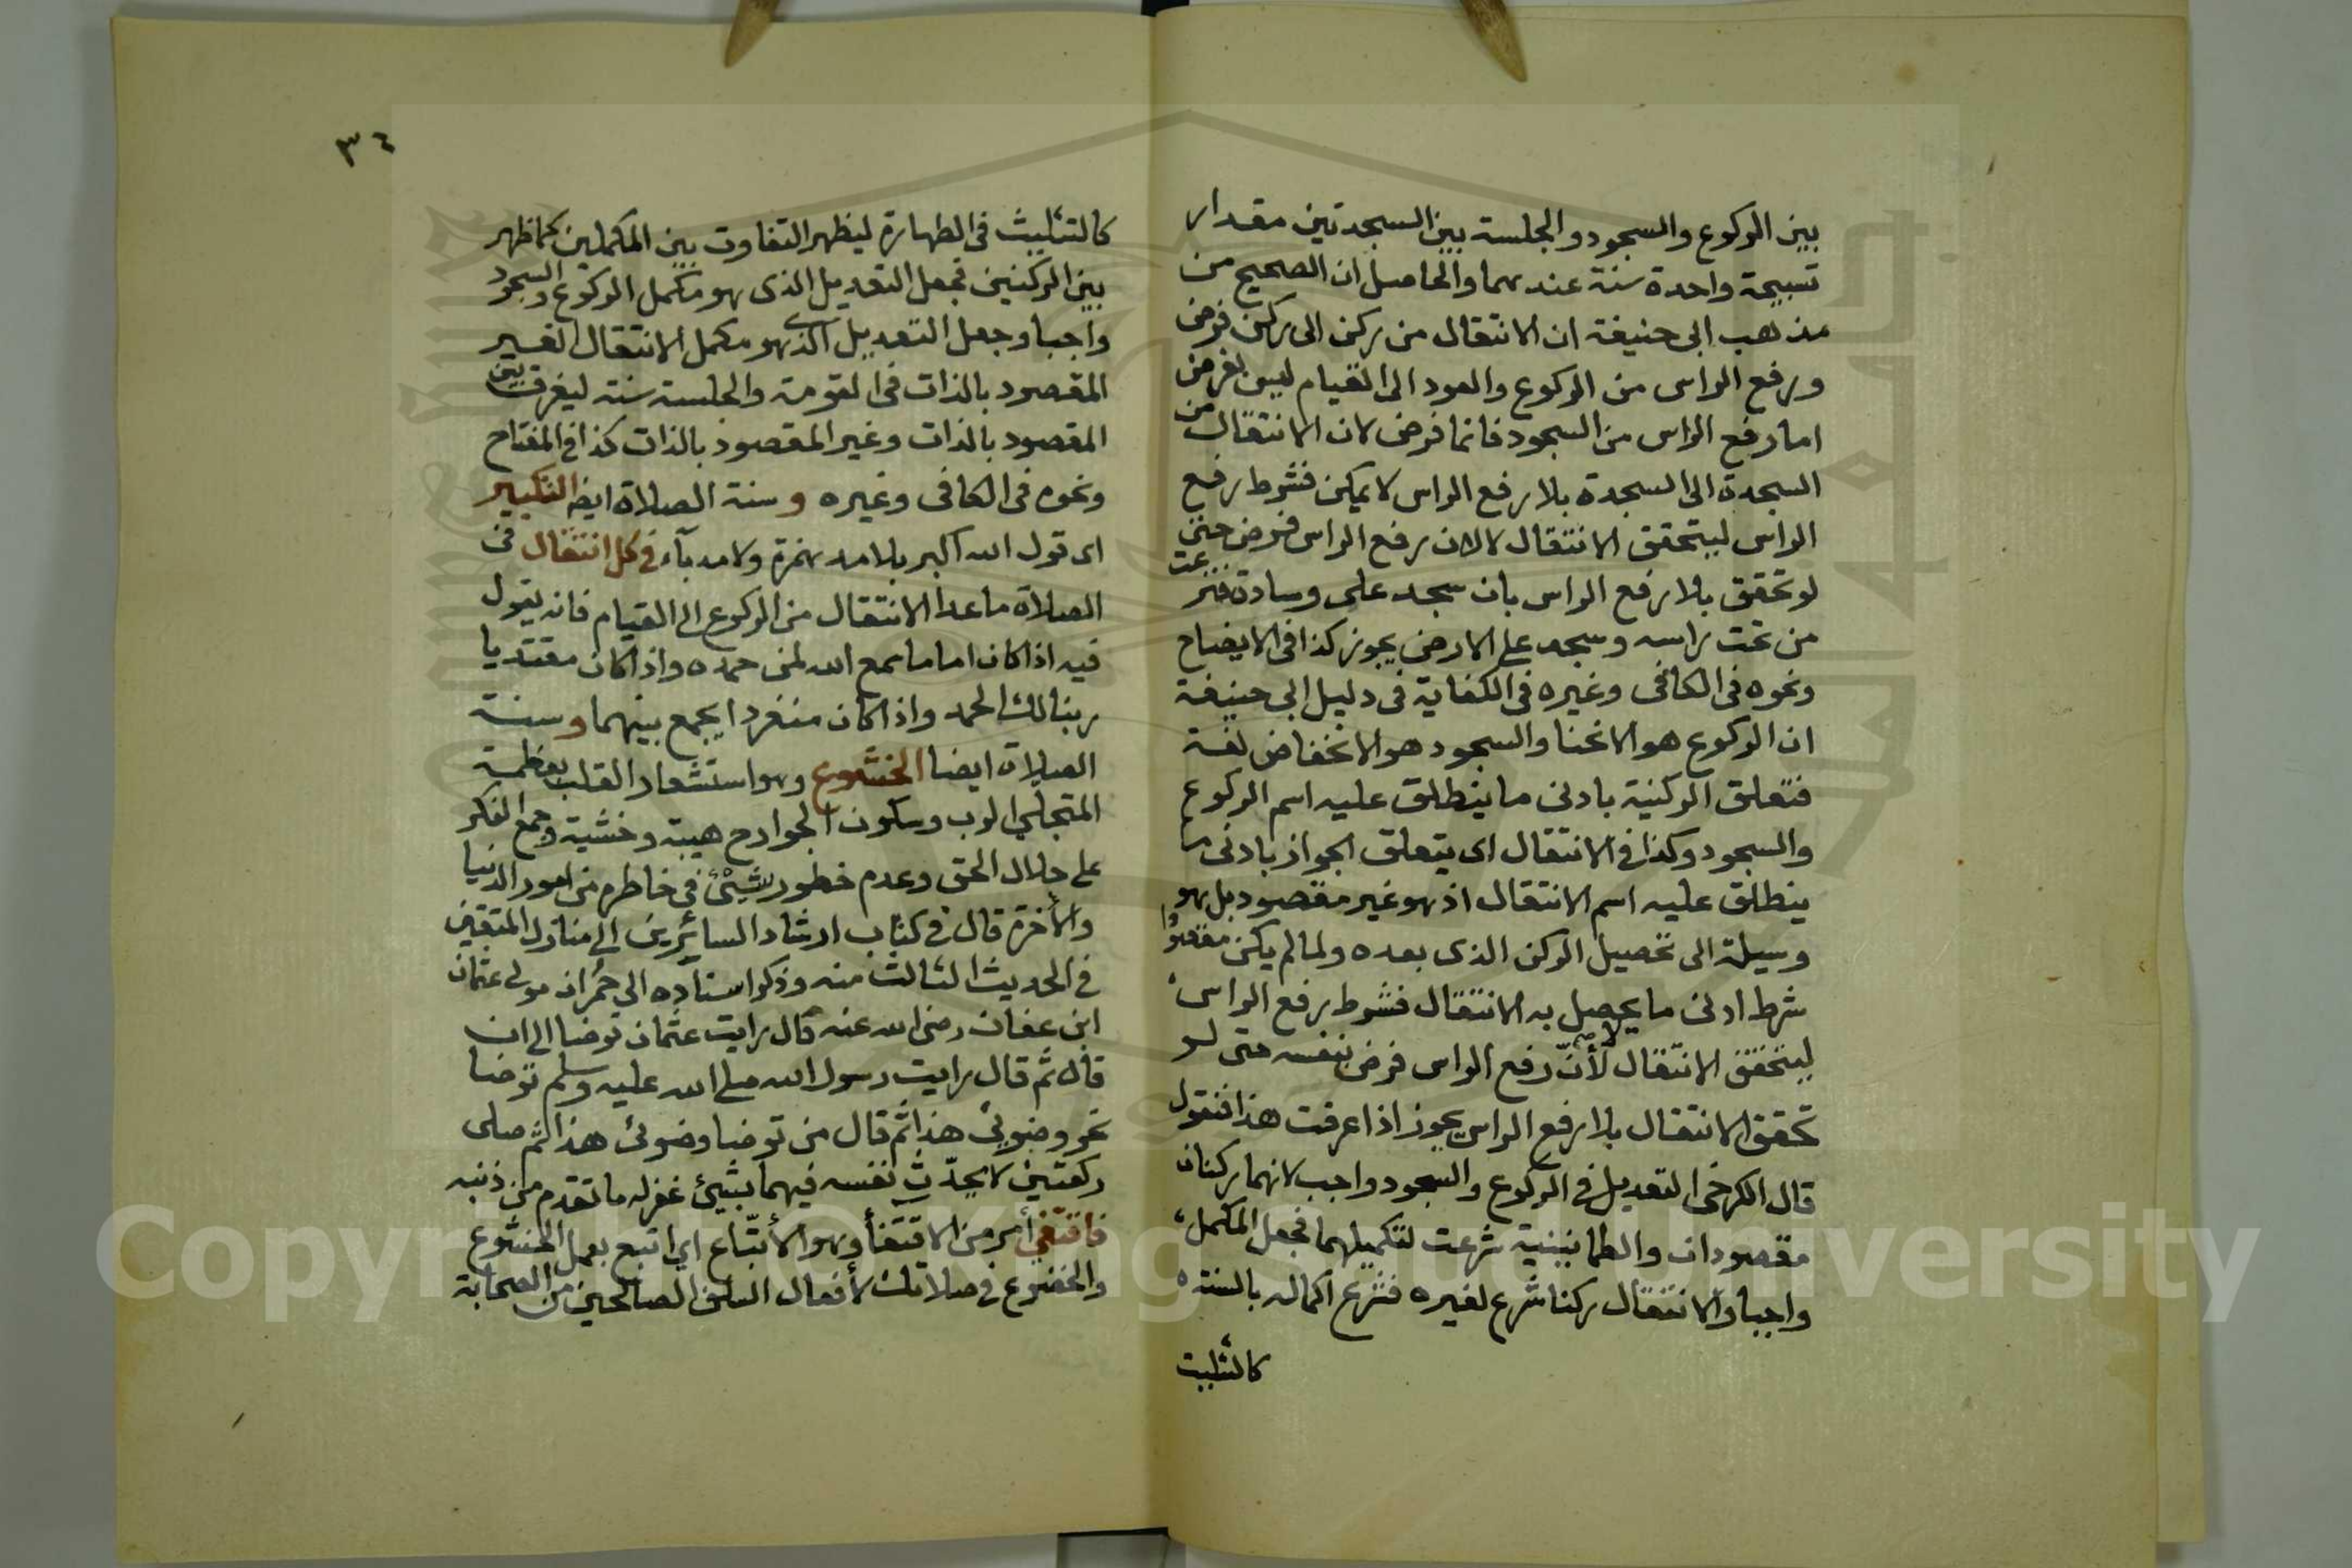 بين الركوع والسجود والجلسة بين السجدتين مقدار
تسبيحة واحدة سنة عندهما والحاصل ان الصحيح من
مذهب ابى حنيفة ان الانتقال من ركن الى ركن فرض
ورفع الراس من الركوع والعود الى القيام ليس بفرض
اما رفع الراس من السجود فانما فرض لان الانتقال من
السجدة الى السجدة بلا رفع الراس لا يمكن فشرط رفع
الراس ليتحقق الانتقال لا لان رفع الراس فرض حتى
لو تحقق بلا رفع الراس بان سجد على وسادة فنزعت
من تحت راسه وسجد على الارض يجوز كذا فى الايضاح
ونحوه فى الكافى وغيره فى الكفاية فى دليل ابى حنيفة
ان الركوع هو الانحنا والسجود هو الانخفاض لغة
فتعلق الركنية بادنى ما ينطلق عليه اسم الركوع
والسجود وكذا فى الانتقال اى يتعلق الجواز بادنى ما
ينطلق عليه اسم الانتقال اذ هو غير مقصود بل هو
وسيلة الى تحصيل الركن الذى بعده ولما لم يكن مقصودا
شرط ادنى ما يحصل به الانتقال فشرط رفع الراس
ليتحقق الانتقال لا لأنّ رفع الراس فرض بنفسه حتى لو
تحقق الانتقال بلا رفع الراس يجوز اذا عرفت هذا فنقول
قال الكرخى التعديل فى الركوع والسجود واجب لانهما ركنان
مقصودان والطمانينية شرعت لتكميلهما فجعل المكمل
واجبا والانتقال ركنا شرع لغيره فشرع اكماله بالسنة
كالتثليث
٣٤
كالتثليث فى الطهارة ليظهر التفاوت بين المكملين كما ظهر
بين الركنين فجعل التعديل الذى هو مكمل الركوع والسجود
واجبا وجعل التعديل الذى هو مكمل الانتقال الغير
المقصود بالذات فى القومة والجلسة سنة ليفرق بين
المقصود بالذات وغير المقصود بالذات كذا فى المفتاح
ونحوه فى الكافى وغيره وسنة الصلاة ايضا التكبير
اى قول الله اكبر بلا مد همزة ولا مد بآء فى كل انتقال فى
الصلاة ماعدا الانتقال من الركوع الى القيام فانه يقول
فيه اذا كان اماما سمع الله لمن حمده واذا كان مقتديا
ربنا لك الحمد واذا كان منفردا يجمع بينهما وسنة
الصلاة ايضا الخشوع وهو استشعار القلب بعظمة
المتجلي الرب وسكون الجوارح هيبة وخشية وجمع الفكر
على جلال الحق وعدم خطور شيئ فى خاطره من امور الدنيا
والأخرة قال فى كتاب ارشاد السائرين الى منازل المتقين
فى الحديث الثالث منه وذكر اسناده الى حُمران مولى عثمان
ابن عفان رضى الله عنه قال رايت عثمان توضا الى ان
قال ثم قال رايت رسول الله صلى الله عليه وسلم توضا
نحو وضوئى هذا ثم قال من توضا وضوئى هذا ثم صلى
ركعتين لا يحدّث نفسه فيهما بشيئ غفر له ما تقدم من ذنبه
فاقتفي أمر من الاقتفأ وهو الأتّباع اي اتبع بعمل الخشوع
والخضوع فى صلاتك لأفعال السلف الصالحين من الصحابة
Copyright © King Saud University